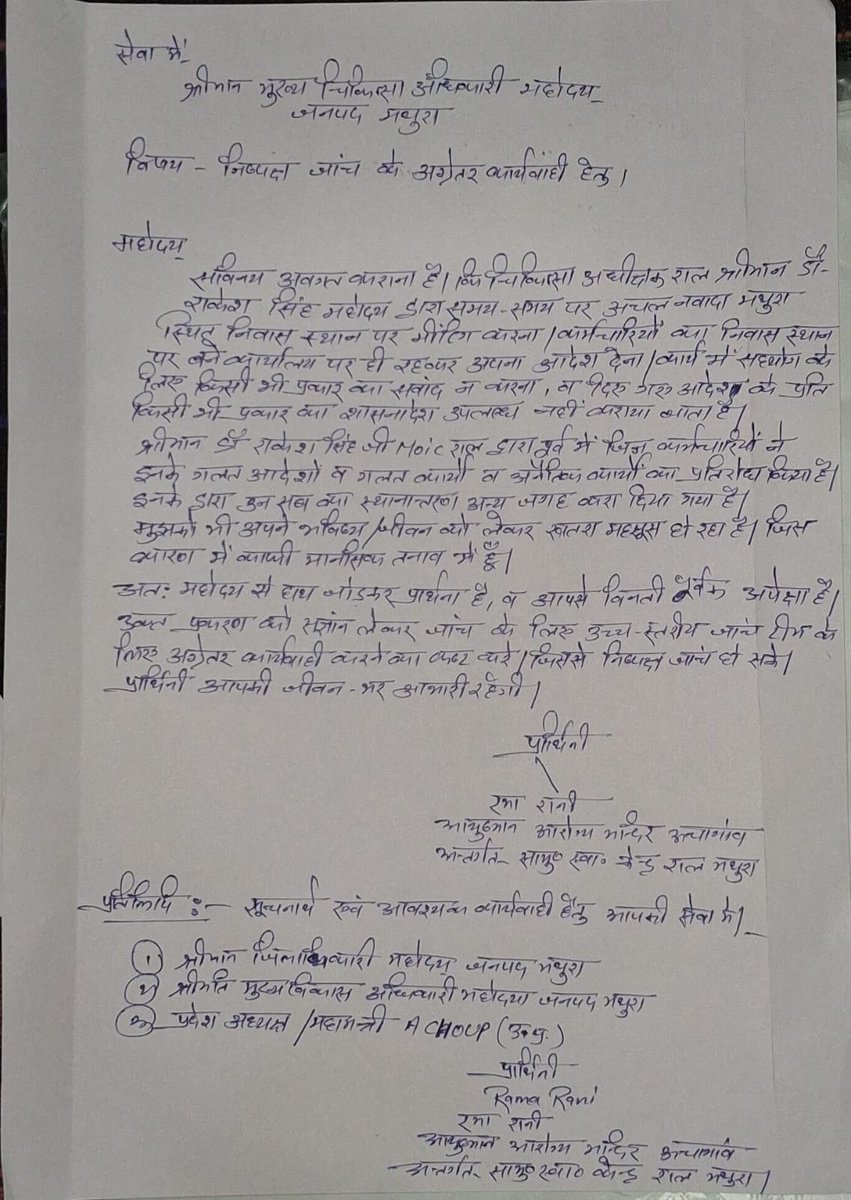 सेवा में,
श्रीमान मुख्य चिकित्सा अधिकारी महोदय,
जनपद मथुरा
विषय - निष्पक्ष जांच के अग्रेतर कार्यवाही हेतु।
महोदय,
सविनय अवगत कराना है। कि चिकित्सा अधीक्षक राल श्रीमान डॉ-
राकेश सिंह महोदय द्वारा समय-समय पर अचल नवादा मथुरा
स्थित निवास स्थान पर मीटिंग करना / कर्मचारियों का निवास स्थान
पर बने कार्यालय पर ही रहकर अपना आदेश देना / कार्य में सहयोग के
लिए किसी भी प्रकार का संवाद न करना, व दिए गए आदेश के प्रति
किसी भी प्रकार का शासनादेश उपलब्ध नहीं कराया जाता है।
श्रीमान डॉ राकेश सिंह जी Moic राल द्वारा पूर्व में जिन कर्मचारियों ने
इनके गलत आदेशों व गलत कार्यों व अनैतिक कार्यों का प्रतिरोध किया है।
इनके द्वारा उन सब का स्थानान्तरण अन्य जगह करा दिया गया है।
मुझको भी अपने भविष्य / जीवन को लेकर खतरा महसूस हो रहा है। जिस
कारण में काफी मानसिक तनाव में हूँ।
अतः महोदय से हाथ जोडकर प्रार्थना है, व आपसे विनती पूर्वक अपेक्षा है।
उक्त प्रकरण को संज्ञान लेकर जांच के लिए उच्च-स्तरीय जांच टीम के
लिए अग्रेतर कार्यवाही करने का कष्ट करें। जिससे निष्पक्ष जांच हो सके।
प्रार्थिनी आपकी जीवन-भर आभारी रहेगी।
प्रार्थिनी
रमा रानी
आयुष्मान आरोग्य मन्दिर
अन्तर्गत सामु० स्वा० केन्द्र राल मथुरा
प्रतिलिपि :- सूचनार्थ एवं आवश्यक कार्यवाही हेतु आपकी सेवा में।
① श्रीमान जिलाधिकारी महोदय, जनपद मथुरा
② श्रीमति मुख्य विकास अधिकारी महोदया जनपद मथुरा
③ प्रदेश अध्यक्ष / महामन्त्री ACHOUP (उ०प्र०)
प्रार्थिनी
Rama Rani
रमा रानी
आयुष्मान आरोग्य मन्दिर
अन्तर्गत सामु० स्वा० केन्द्र राल मथुरा।